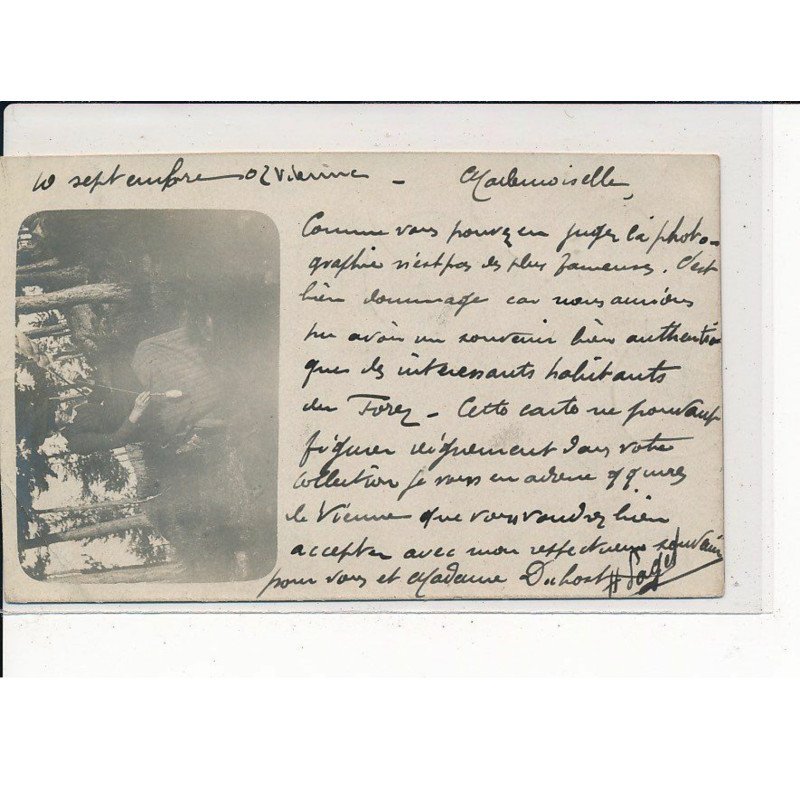 10 septembre 02 Vienne -
Mademoiselle,
Comme vous pouvez en juger la photo-
graphie n'est pas des plus fameuses. C'est
bien dommage car nous aurions
pu avoir un souvenir bien authenti
ques des interessants habitants
du Forez - Cette carte ne pouvant
figurer dignement dans votre
collection je vous en adresse qq unes
de Vienne que vous voudrez bien
accepter avec mon respectueux souvenir
pour vous et Madame Duhost